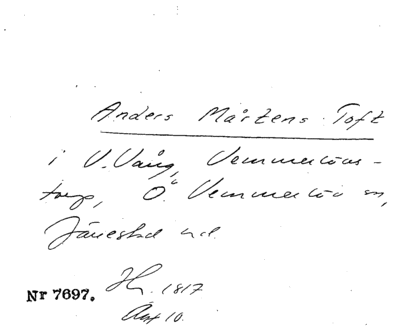 Anders Mårtens Toft
i V. Vång, Vemmenlövs-
torp, Ö. Vemmenlöv sn,
Järrestad hd.
Nr 7697.
1817